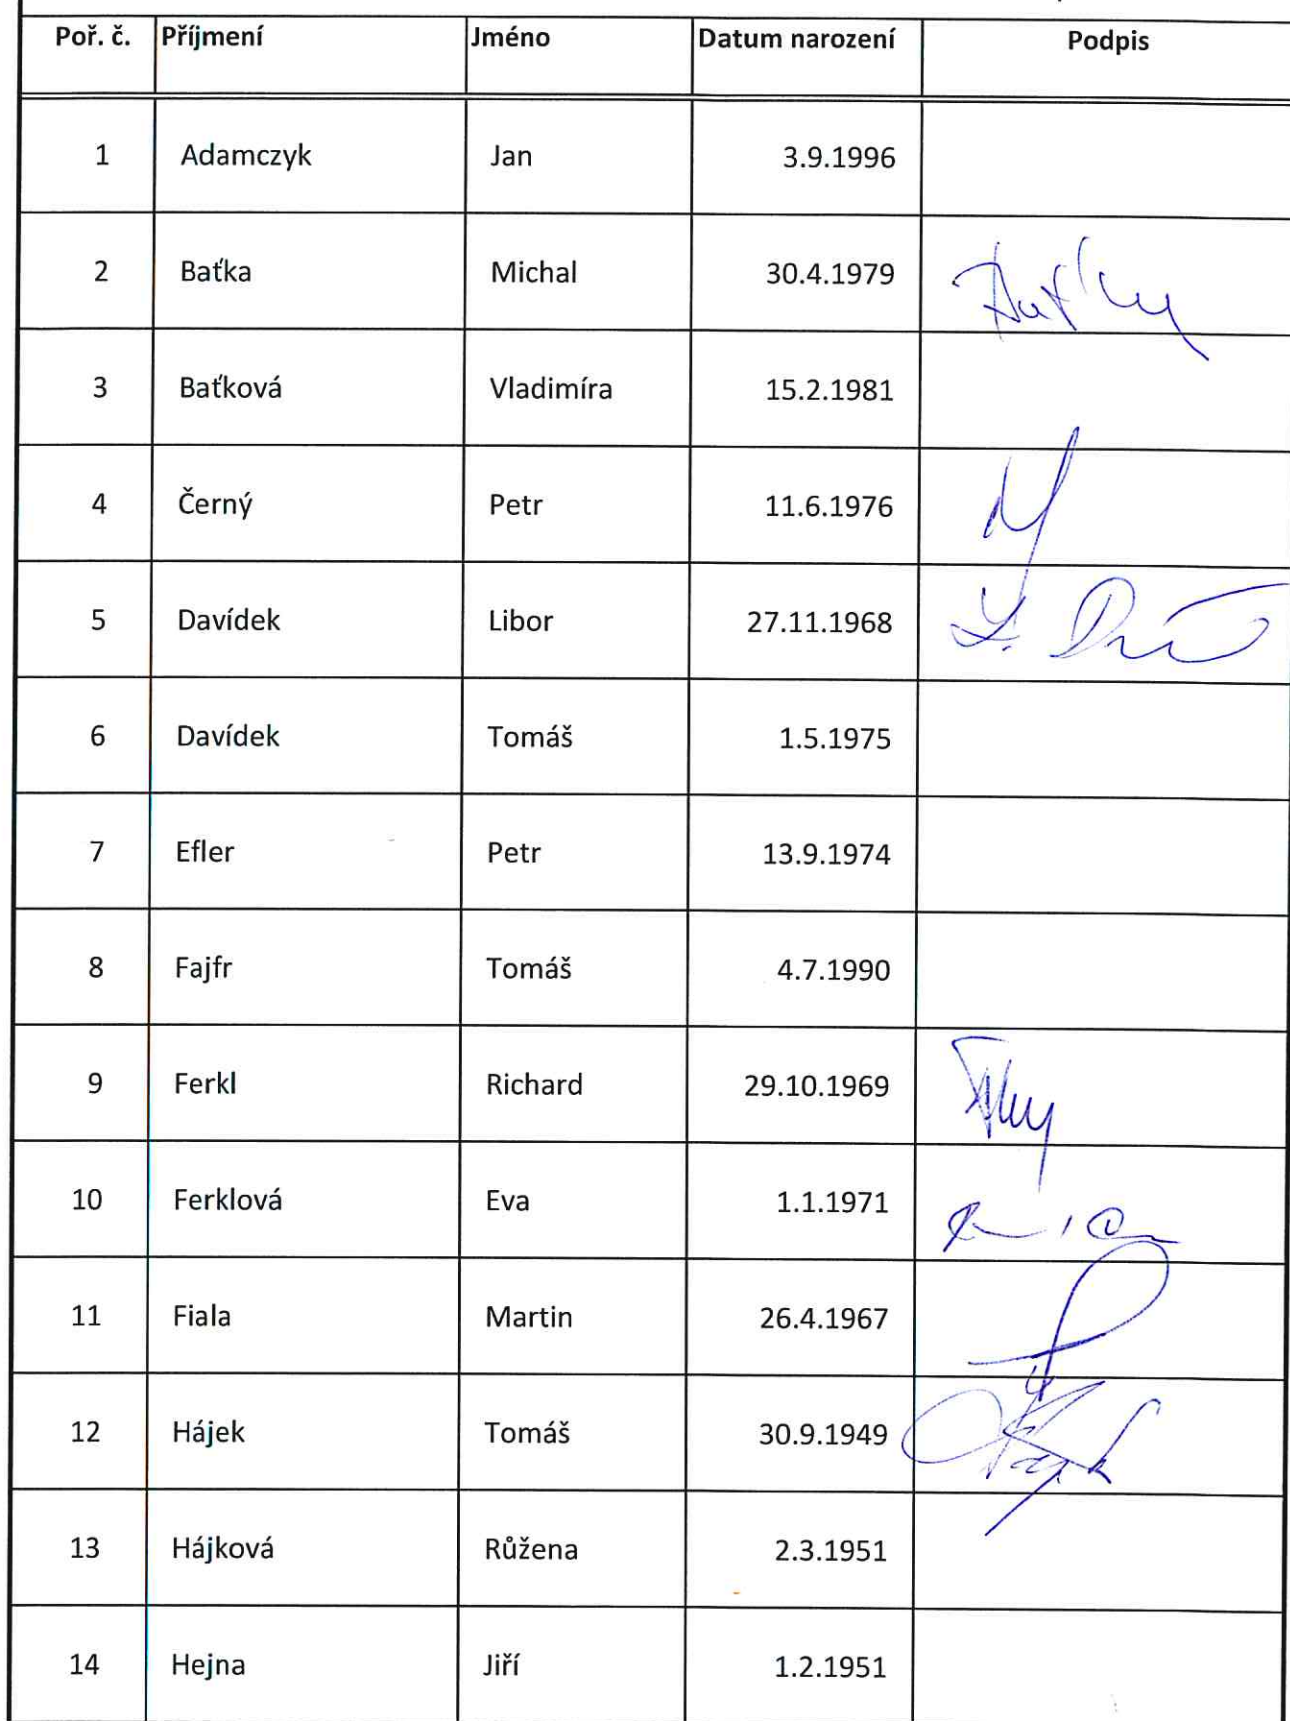 Poř. č. Příjmení Jméno Datum narození Podpis
1 Adamczyk Jan 3.9.1996
2 Baťka Michal 30.4.1979
3 Baťková Vladimíra 15.2.1981
4 Černý Petr 11.6.1976
5 Davídek Libor 27.11.1968
6 Davídek Tomáš 1.5.1975
7 Efler Petr 13.9.1974
8 Fajfr Tomáš 4.7.1990
9 Ferkl Richard 29.10.1969
10 Ferklová Eva 1.1.1971
11 Fiala Martin 26.4.1967
12 Hájek Tomáš 30.9.1949
13 Hájková Růžena 2.3.1951
14 Hejna Jiří 1.2.1951